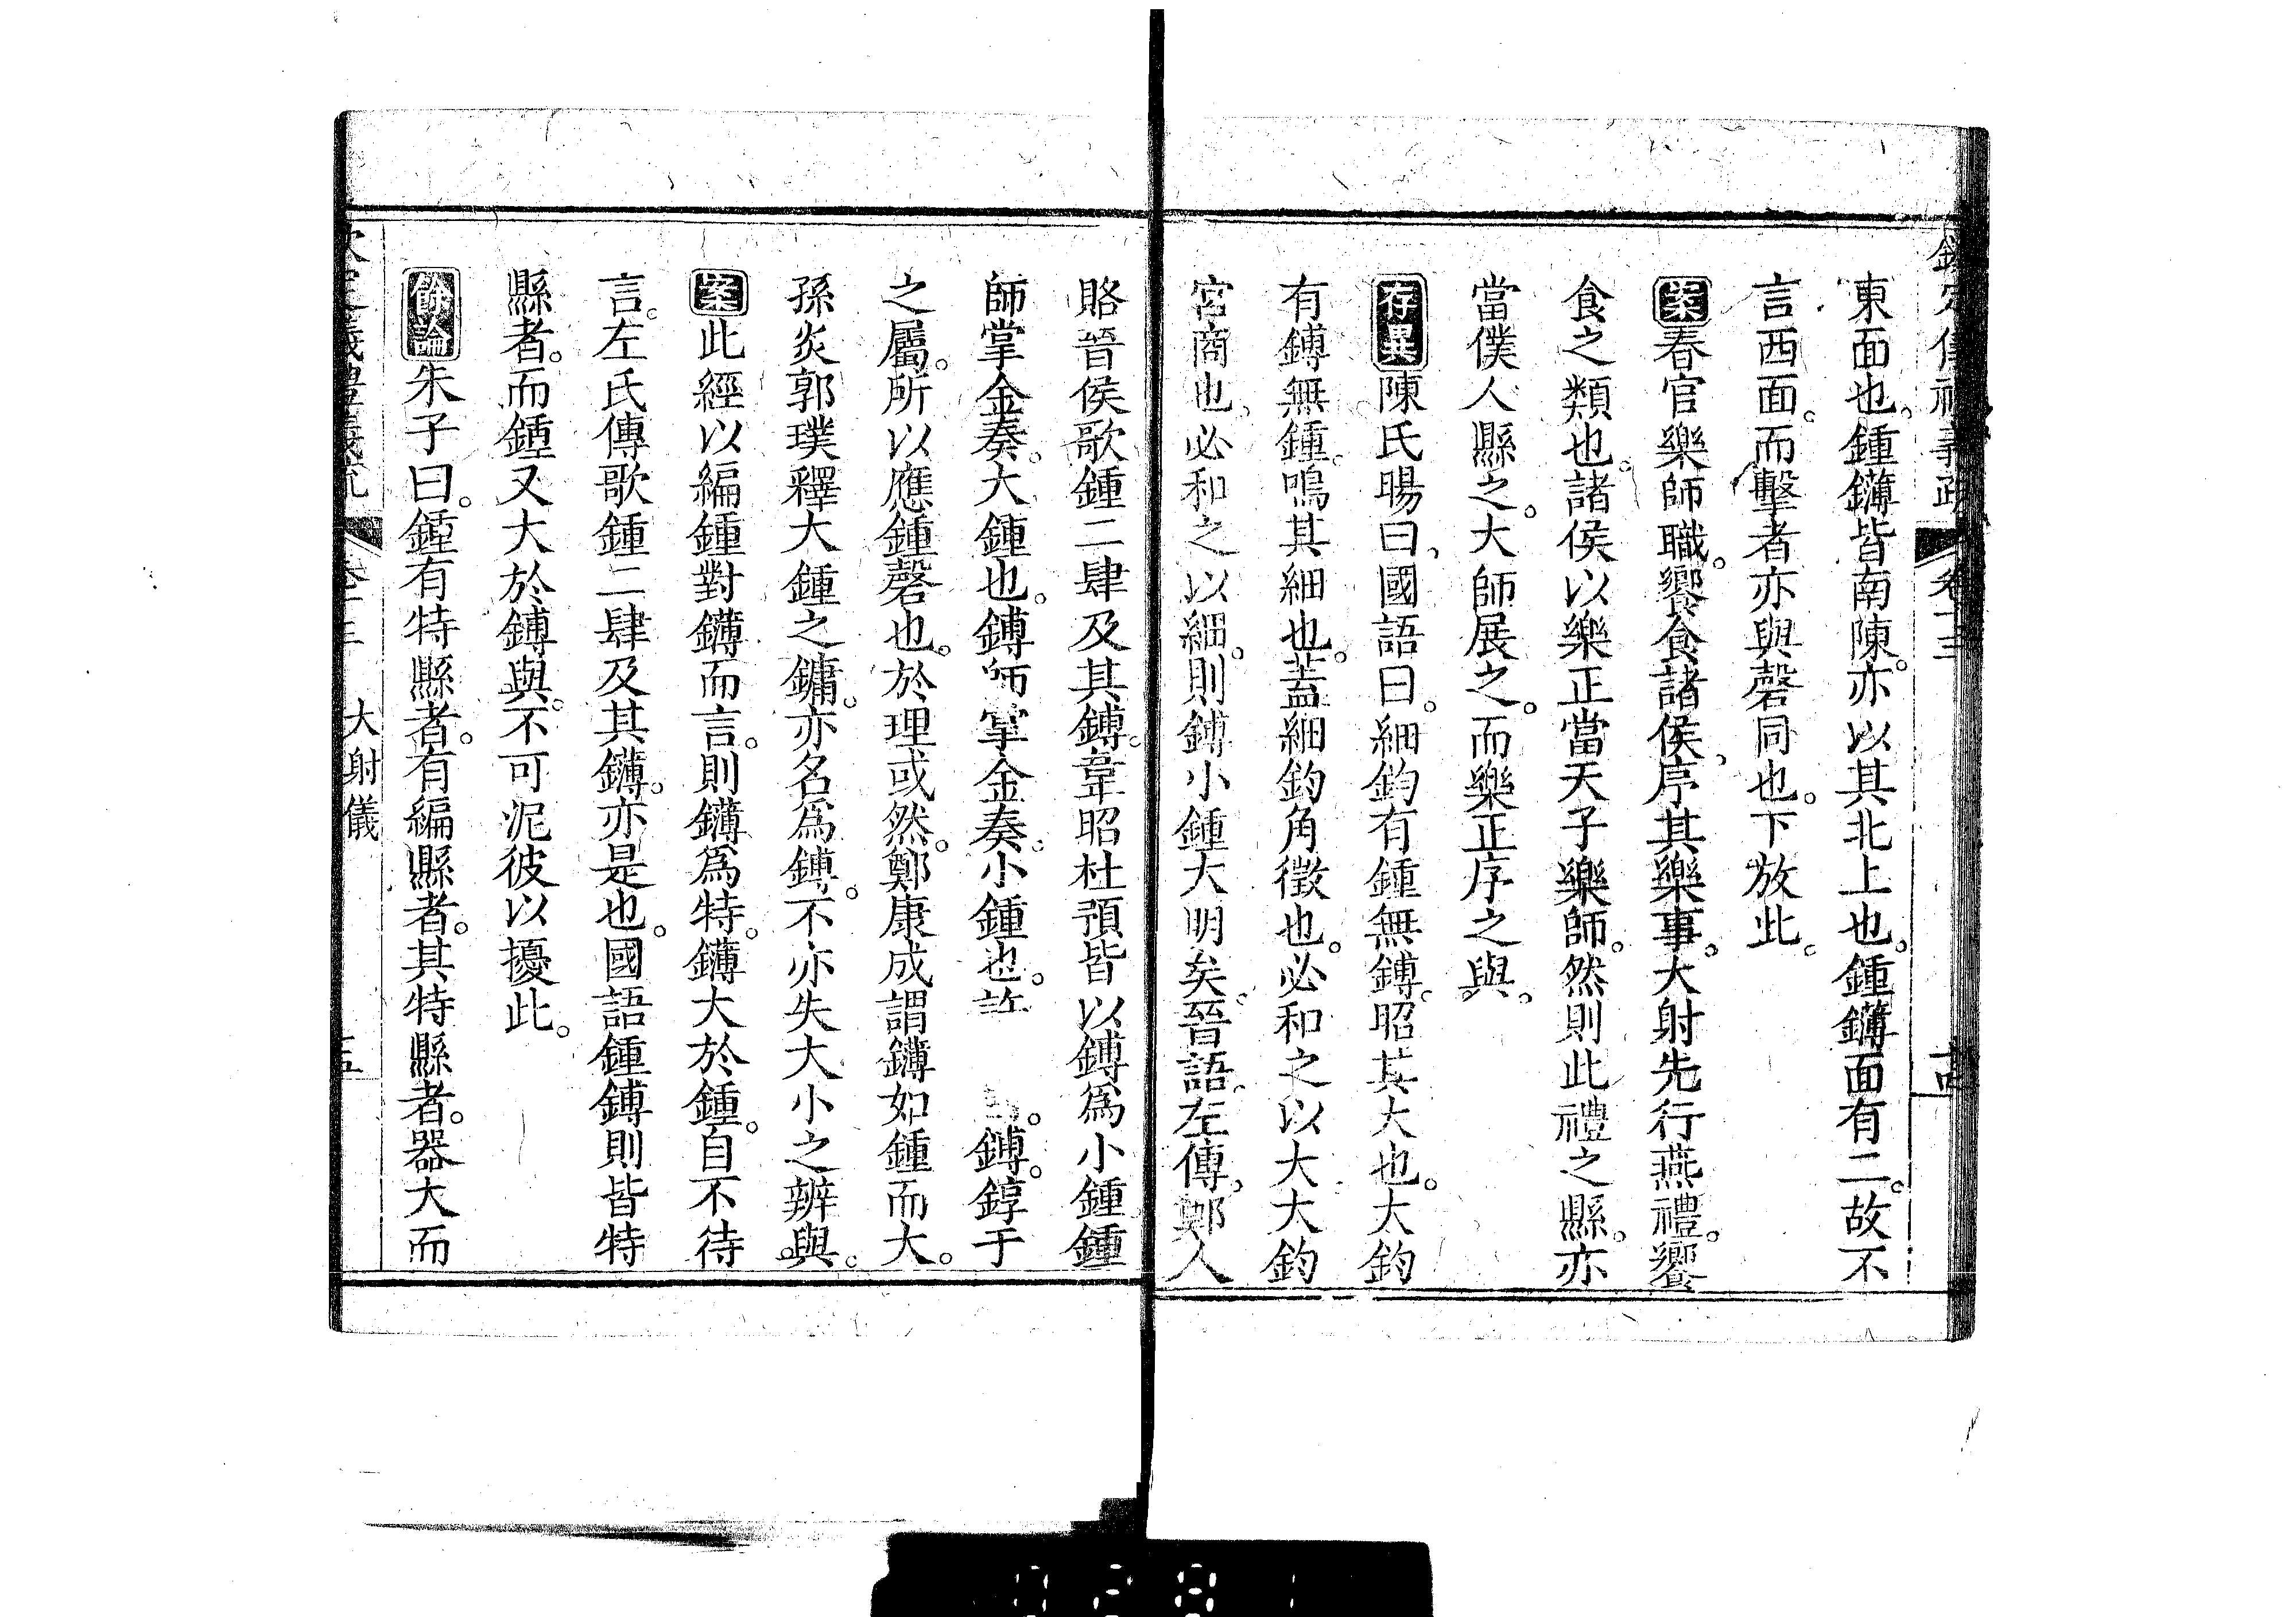 東面也。鍾鑮皆南陳。亦以其北上也。鍾鑮面有二。故不
言西面。而擊者亦與磬同也。下放此。
案春官樂師職。饗食諸侯、序其樂事。大射先行燕禮。饗
食之類也。諸侯以樂正當天子樂師。然則此禮之縣。亦
當僕人縣之。大師展之。而樂正序之與。
存異陳氏暘曰、國語曰。細鈞有鍾無鎛。昭其大也。大鈞
有鎛無鍾。鳴其細也。葢細鈞角徵也。必和之以大大鈞
宮商也、必和之以細。則鎛小鍾大明矣。晉語。左傳、鄭人
賂晉侯歌鍾二肆及其鎛。韋昭杜預皆以鎛爲小鍾鍾
師掌金奏。大鍾也。鎛師掌金奏。小鍾也。許 。鎛。錞于
之屬。所以應鍾磬也。於理或然。鄭康成謂鑮如鍾而大。
孫炎郭璞釋大鍾之鏞。亦名爲鎛。不亦失大小之辨與。
案此經以編鍾對鑮而言。則鑮爲特。鑮大於鍾。自不待
言。左氏傳歌鍾二肆及其鑮。亦是也。國語鍾鎛則皆特
縣者。而鍾又大於鎛與。不可泥彼以擾此。
餘論朱子曰。鍾有特縣者。有編縣者。其特縣者。器大而
大射儀